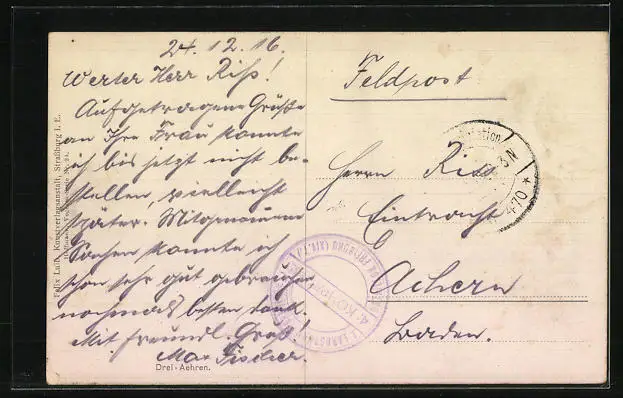 24.12.16.
Werter Herr Riss!
Aufgetragene Grüsse
an Ihre Frau konnte
ich bis jetzt nicht be-
stellen, vielleicht
später. Mitgenommene
Sachen konnte ich
schon sehr gut gebrauchen
nochmals besten Dank.
Mit freundl. Gruß!
Max Fischer.
Drei-Aehren.
Felix Luib, Kunstverlagsanstalt, Straßburg i. E.
Feldpost
Herrn Riss
Eintracht
Achern
Baden.
3 N
470 *